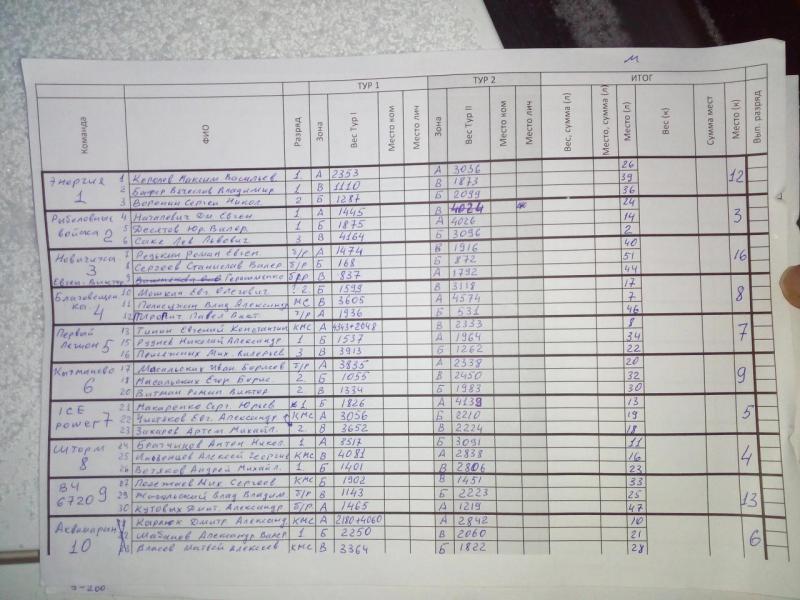 м
ТУР 1 ТУР 2 ИТОГ
Команда ФИО Разряд Зона Вес Тур I Место ком Место лич Зона Вес Тур II Место ком Место лич Вес, сумма (л) Место, сумма (л) Место (л) Вес (к) Сумма мест Место (к) Вып. разряд
Энергия 1 Королев Максим Васильев 1 А 2353 А 3036 26
1 2 Вячеслав Владимир 1 В 1110 В 1873 39 12
3 Воронин Сергей Никол. 2 Б 1287 Б 2099 36
Рыболовные 4 Евген 1 А 1445 В 24
войска 2 5 Десятов Юр. Валер. 1 Б 1875 А 4026 14 3
6 Саке Лев Львович 3 В 4164 Б 3096 2
Новичихса 7 Резькин Роман Евген б/р А 1474 В 1916 40
3 8 Сергеев Станислав Валер б/р Б 168 Б 872 51 16
Евген. Виктор 9 Герашменко б/р В 837 А 1792 44
Благовещен 10 Мошкин Евг. Олегович 2 Б 1599 В 3118 17
ка 4 11 Влад Александр МС В 3605 А 4574 7 8
12 Павел Викт. б/р А 1936 Б 531 46
Первый 13 Тинин Евгений Константин КМС А 4343+2048 В 2333 8
Легион 5 15 Руднев Николай Александр 1 Б 1537 А 1964 34 7
16 Мих. Валерьев 3 В 3913 Б 1262 22
Кытманово 17 Масальских Иван Борисов б/р А 3835 А 2338 20
6 18 Масальских Егор Борис. 2 Б 1055 В 2450 32 9
20 Витман Роман Виктор 2 В 1334 Б 1983 30
ICE 21 Макаренко Серг. Юрьев 1 Б 1826 А 4139 13
power 7 22 Чистяков Евг. Александр КМС А 3056 Б 2210 19 5
23 Захаров Артем Михайл. 2 В 3652 В 2224 18
Шторм 24 Братчиков Антон Никол. 1 А 3517 Б 3091 11
8 25 Алексей Георгие КМС В 4081 А 2838 16 4
26 Вотяков Андрей Михайл. 1 Б 1401 В 2806 23
ВЧ 27 Полежаев Мих Сергеев КМС Б 1902 В 1451 33
6720 9 29 Влад Владим б/р В 1143 Б 2223 25 13
30 Кутовых Дмит. Александр б/р А 1465 А 1219 47
Аквамарин Карлюк Дмитр Александ КМС А 2180+4060 А 2842 10
10 Александр Валер 1 Б 2250 В 2060 21 6
Власов Матвей Алексеев КМС В 3364 Б 1822 28